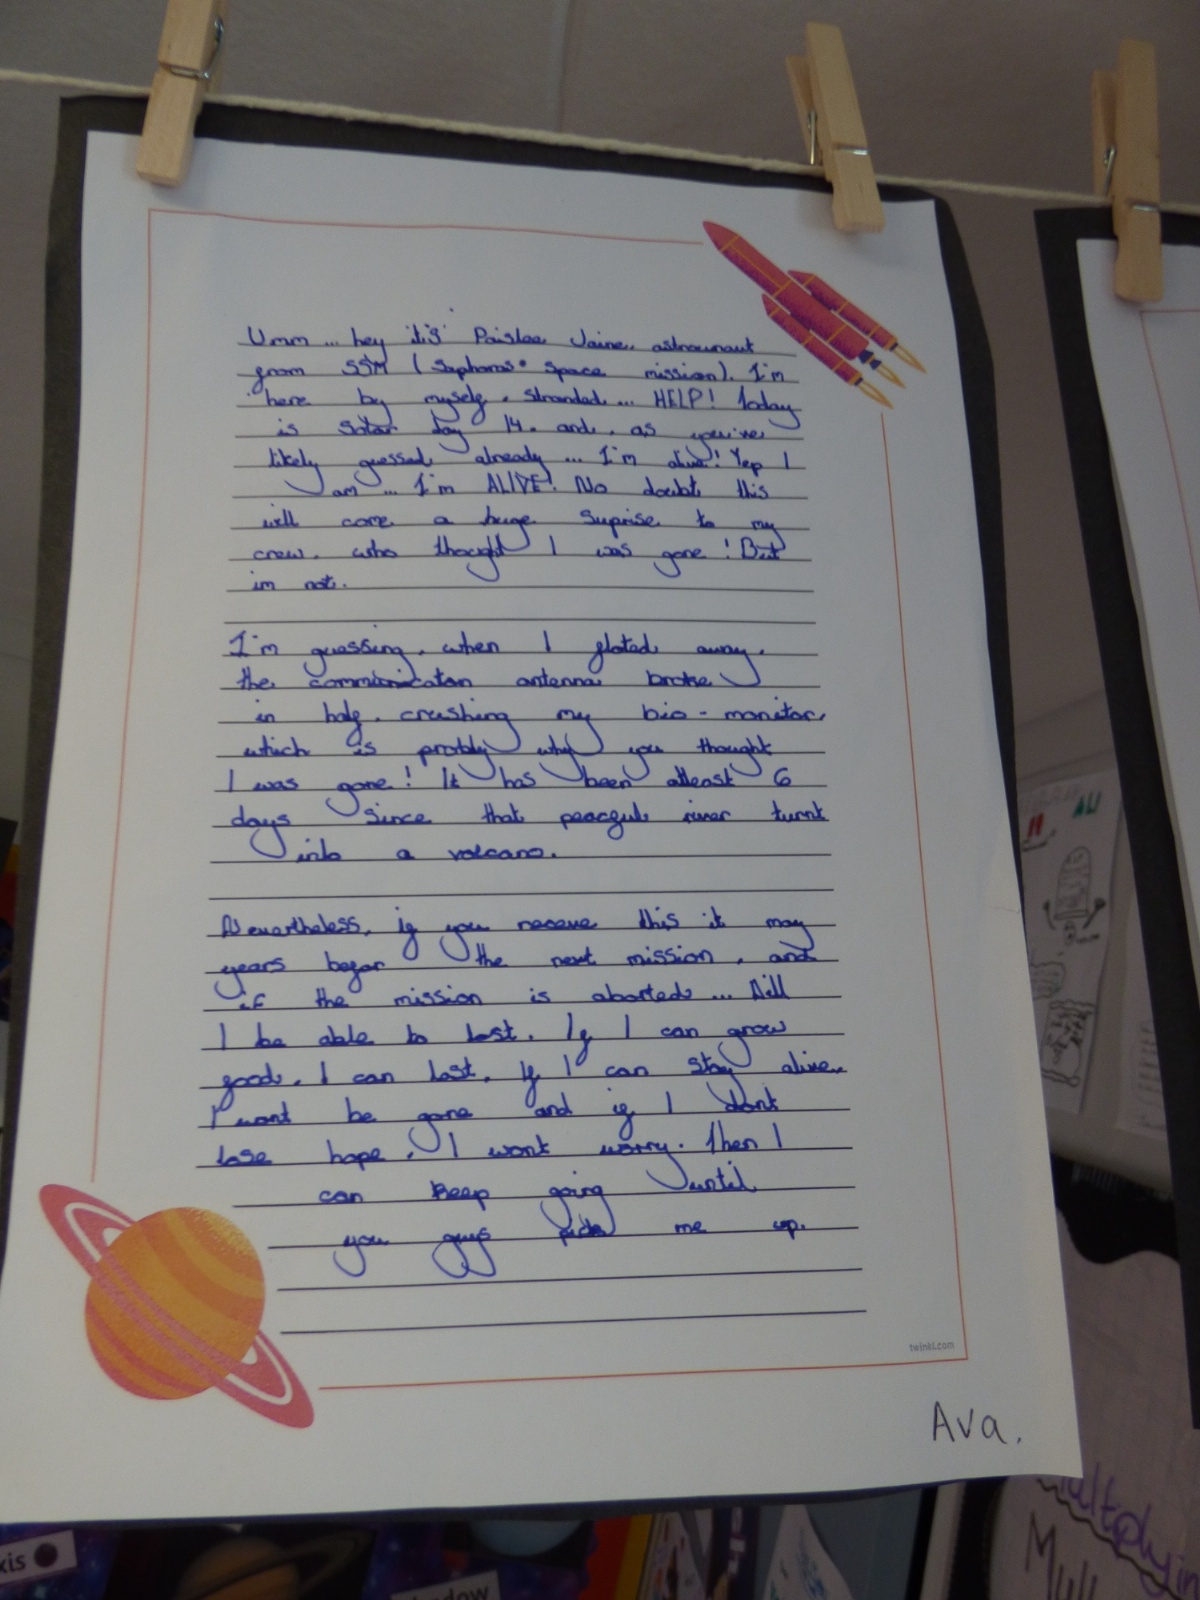 Umm ... hey it's Paislee Jaine, astraunaut
from SSM (Saphoras' Space mission). I'm
here by myself, stranded... HELP! Today
is Solar day 14. and, as you've
likely guessed already ... I'm alive! Yep I
am ... I'm ALIVE! No doubt this
will come a huge suprise to my
crew, who thought I was gone! But
im not.
I'm guessing, when I floted away,
the communicaton antenna broke
in half, crushing my bio-monitor,
which is probly why you thought
I was gone! It has been atleast 6
days since that peacful river turnt
into a volcano.
Nevertheless, if you receve this it may
years befor the next mission, and
if the mission is aborted... Will
I be able to last. If I can grow
food, I can last. If I can stay alive,
I wont be gone and if I dont
lose hope, I wont worry. Then I
can keep going until
you guys pick me up.
twinkl.com
Ava.
xis
dow
Multiplyin
Mul